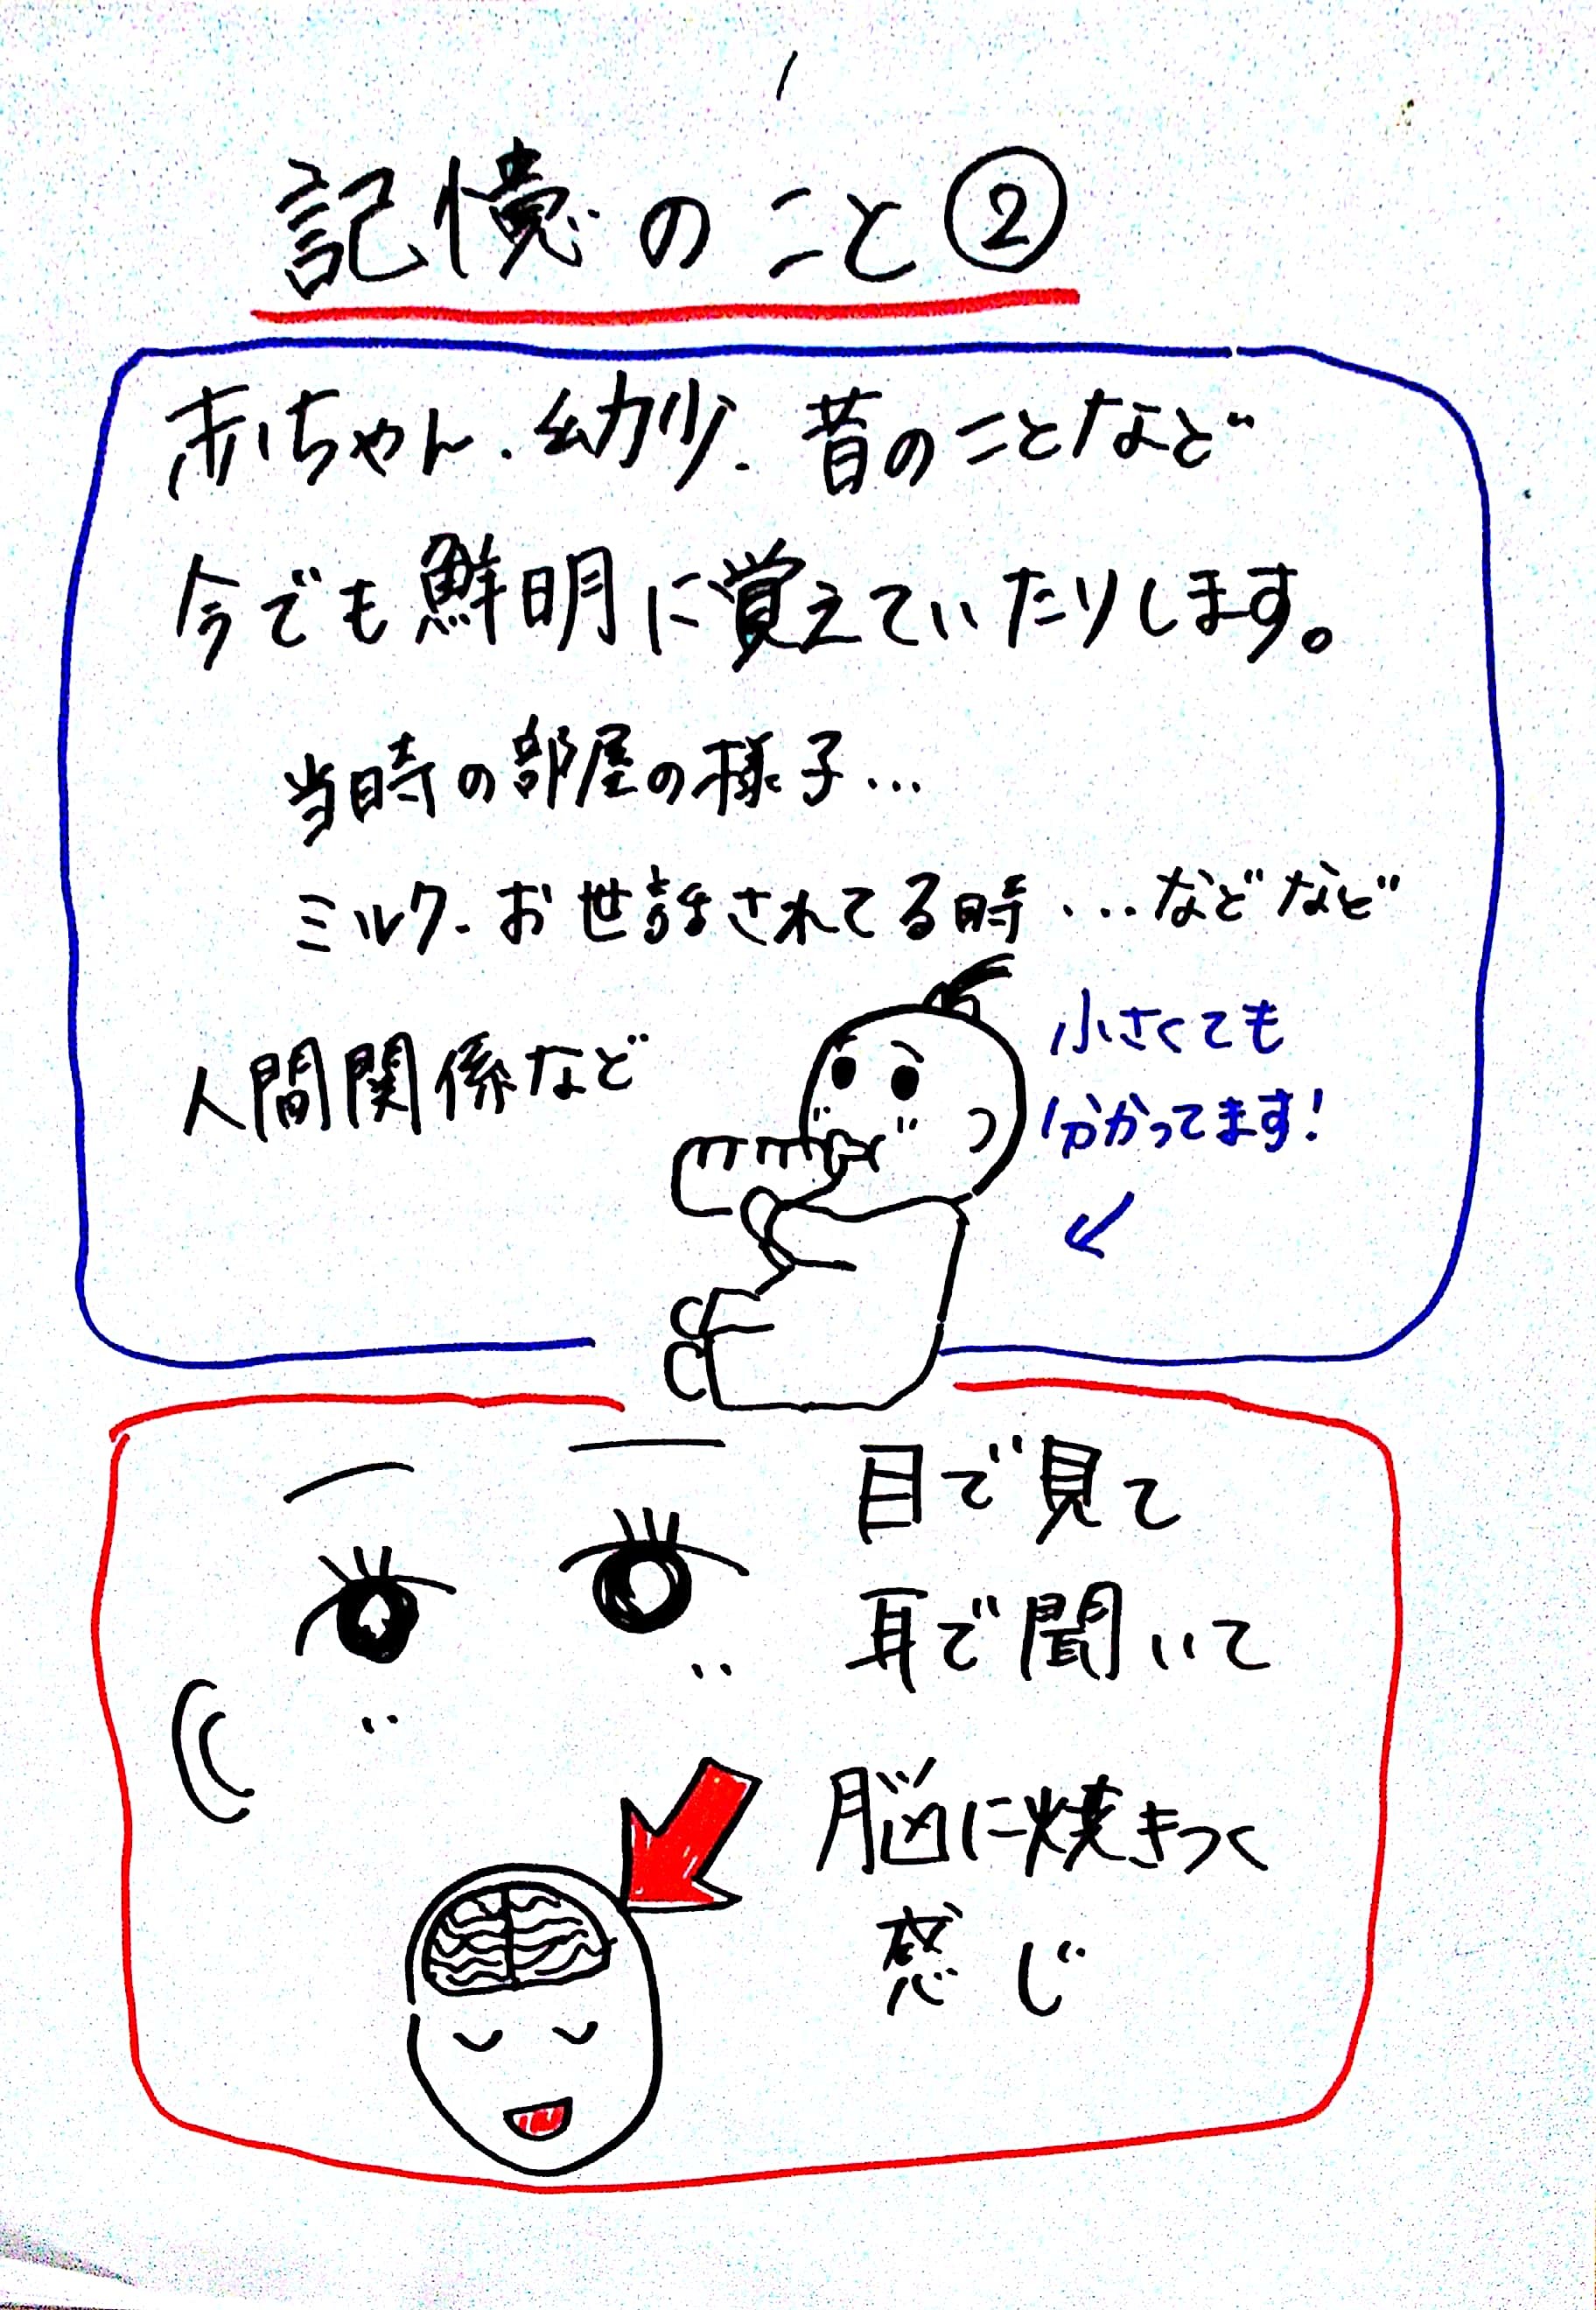 記憶のこと②
赤ちゃん.幼少.昔のことなど
今でも鮮明に覚えていたりします。
当時の部屋の様子…
ミルク.お世話されてる時…などなど
人間関係など
小さくても
分かってます!
目で見て
耳で聞いて
脳に焼きつく
感じ